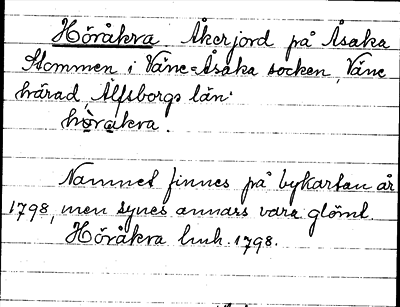 Höråkra Åkerjord på Åsaka
Stommen i Väne-Åsaka socken, Väne
härad, Älfsborgs län.
hòrakra.
Namnet finnes på bykartan år
1798, men synes annars vara glömt.
Höråkra lmh. 1798.